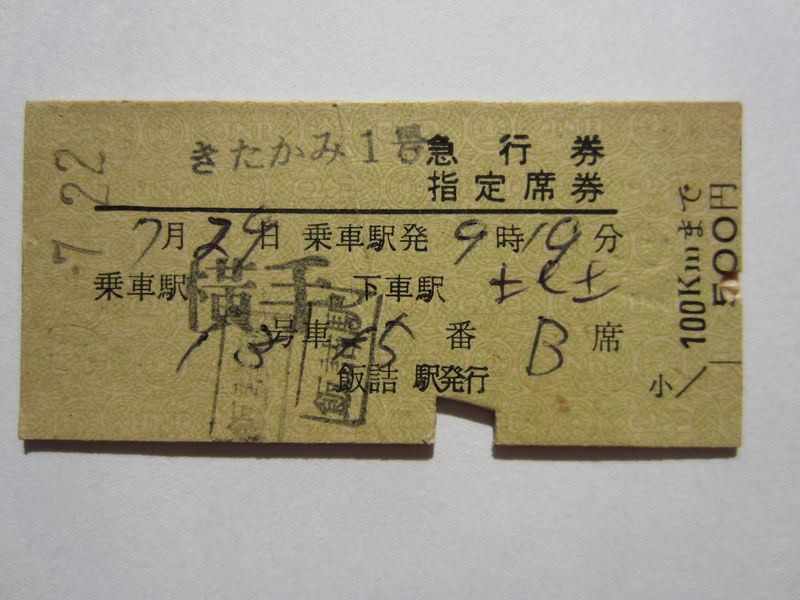 きたかみ1号 急行券
指定席券
7月29日 乗車駅発 9時19分
乗車駅 横手 下車駅
号車 5番 B席
飯詰 駅発行
7 22
100Kmまで 500円
小
飯詰駅